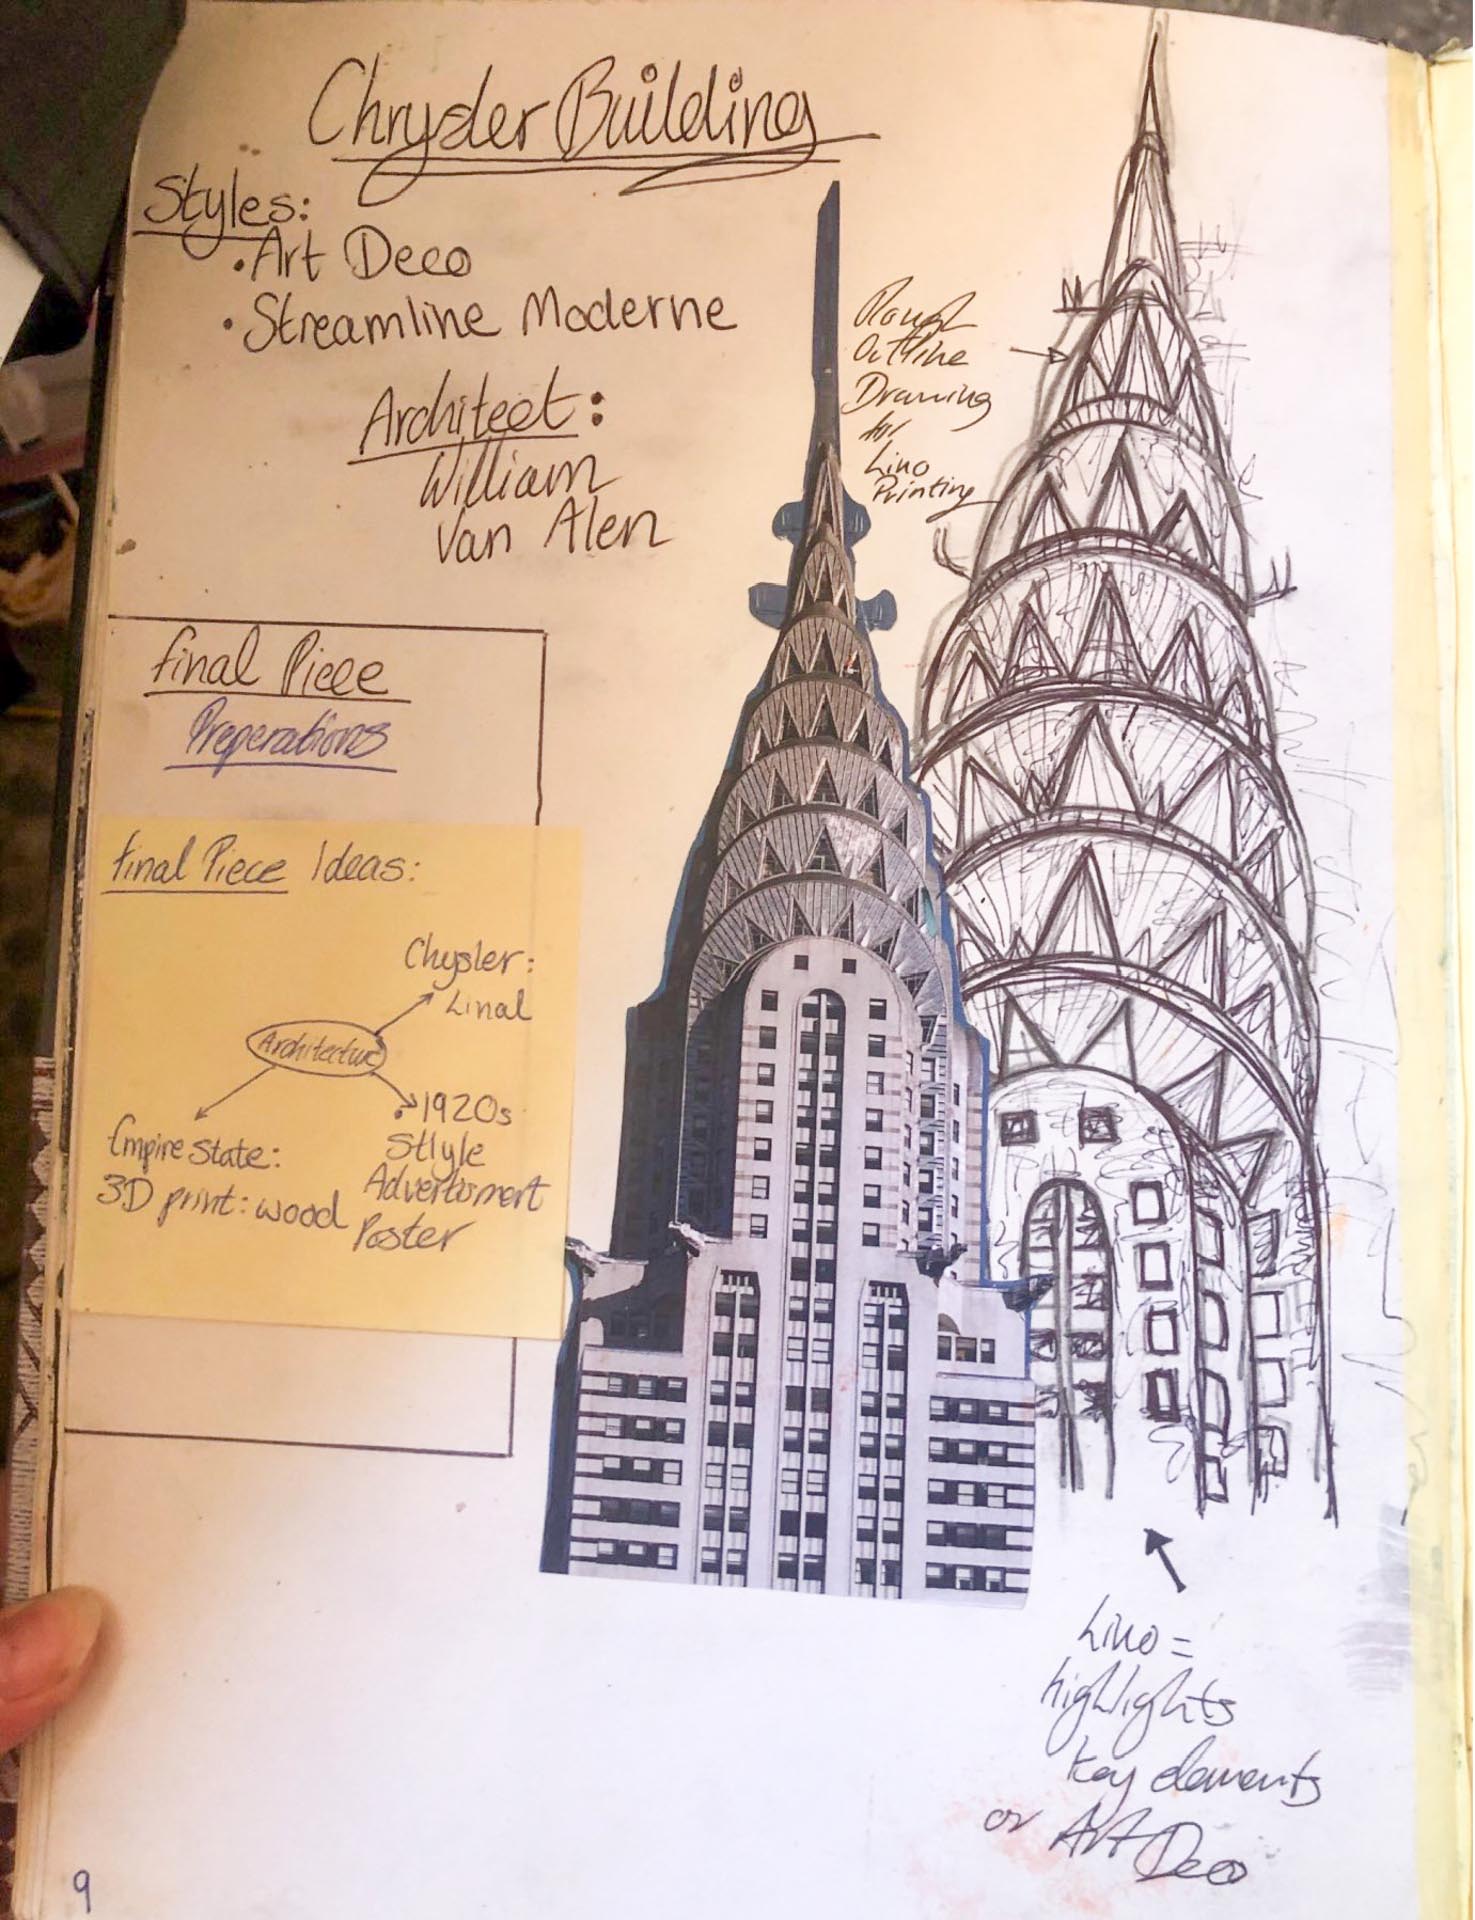 Chrysler Building
Styles:
• Art Deco
• Streamline Moderne
Architect:
William
Van Alen
Rough
Outline
Drawing
for
Lino
Printing
Final Piece
Preperations
Final Piece Ideas:
Chysler:
Linal
Architecture
• 1920s
Stlyle
Advertisment
Poster
Empire State:
3D print: wood
Lino =
highlights
key elements
or Art Deco
9